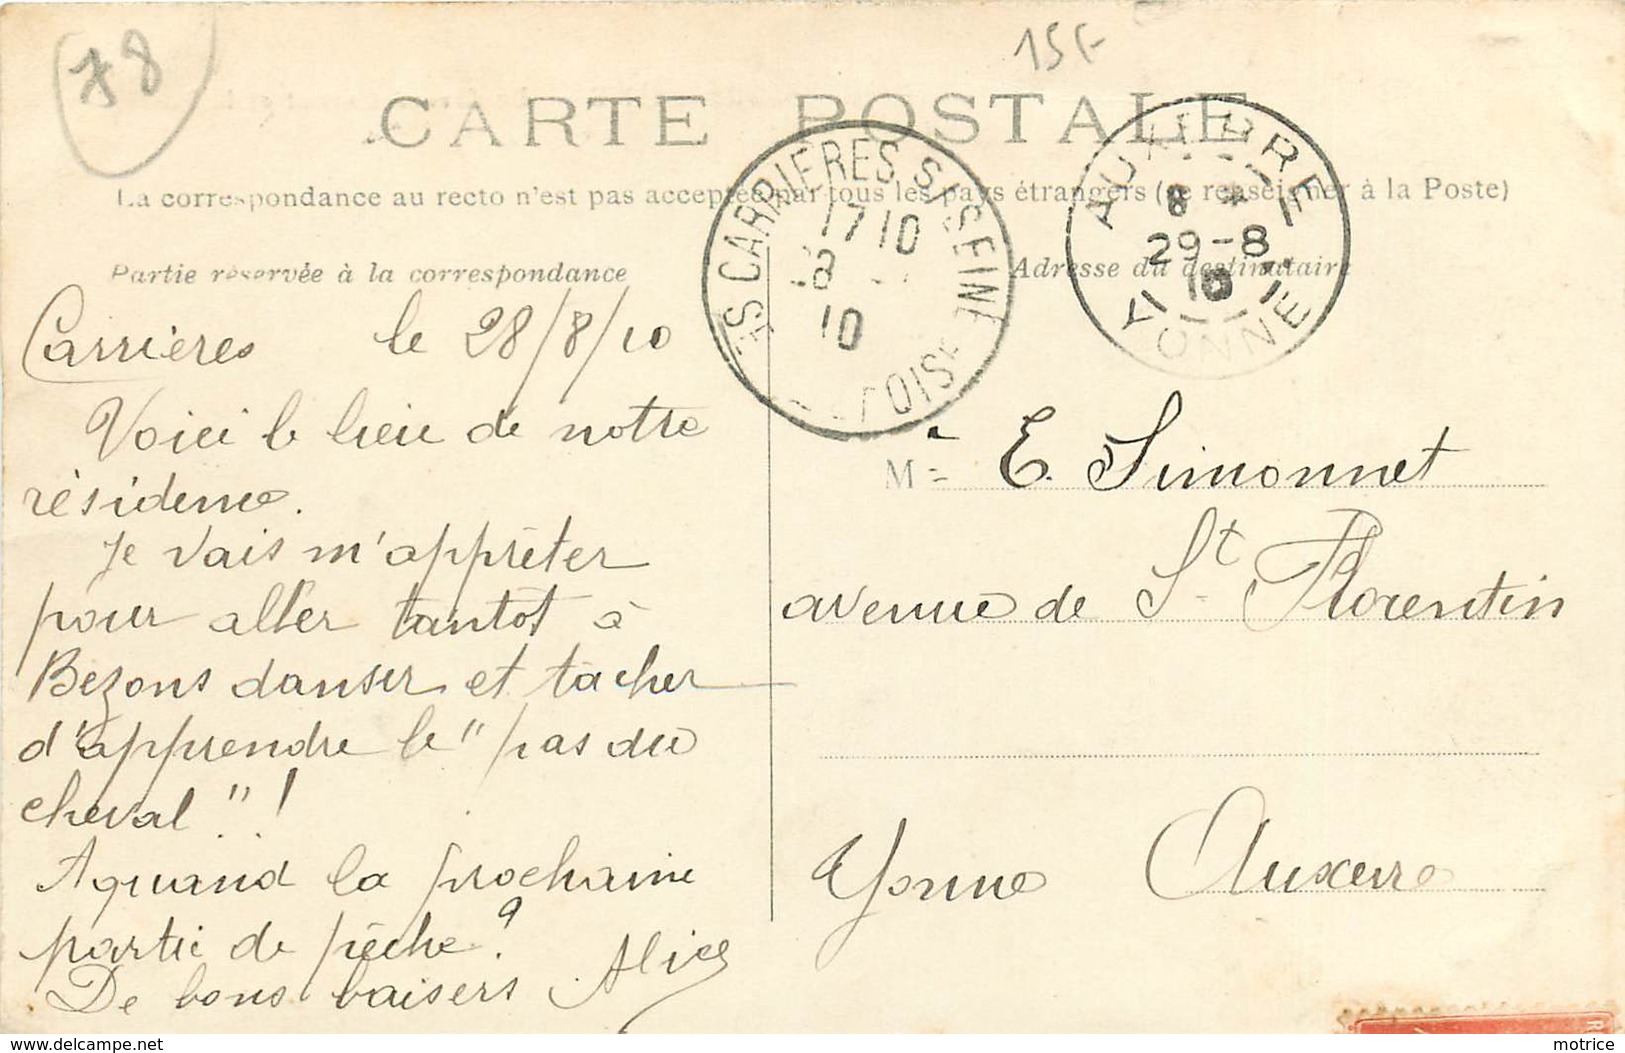 78
15F
CARTE POSTALE
La correspondance au recto n'est pas acceptée par tous les pays étrangers (se renseigner à la Poste)
Partie réservée à la correspondance
Adresse du destinataire
CARRIERES S/ SEINE
OISE
1710
8
10
AUXERRE
8 *
29-8
10
YONNE
Carrières le 28/8/10
Voici le lieu de notre
résidence.
Je vais m'apprêter
pour aller tantôt à
Bezons danser et tâcher
d'apprendre le "pas du
cheval"!
A quand la prochaine
partie de pêche?
De bons baisers Alice
M E. Simonnet
avenue de St Florentin
Yonne Auxerre
delcampe.net
motrice